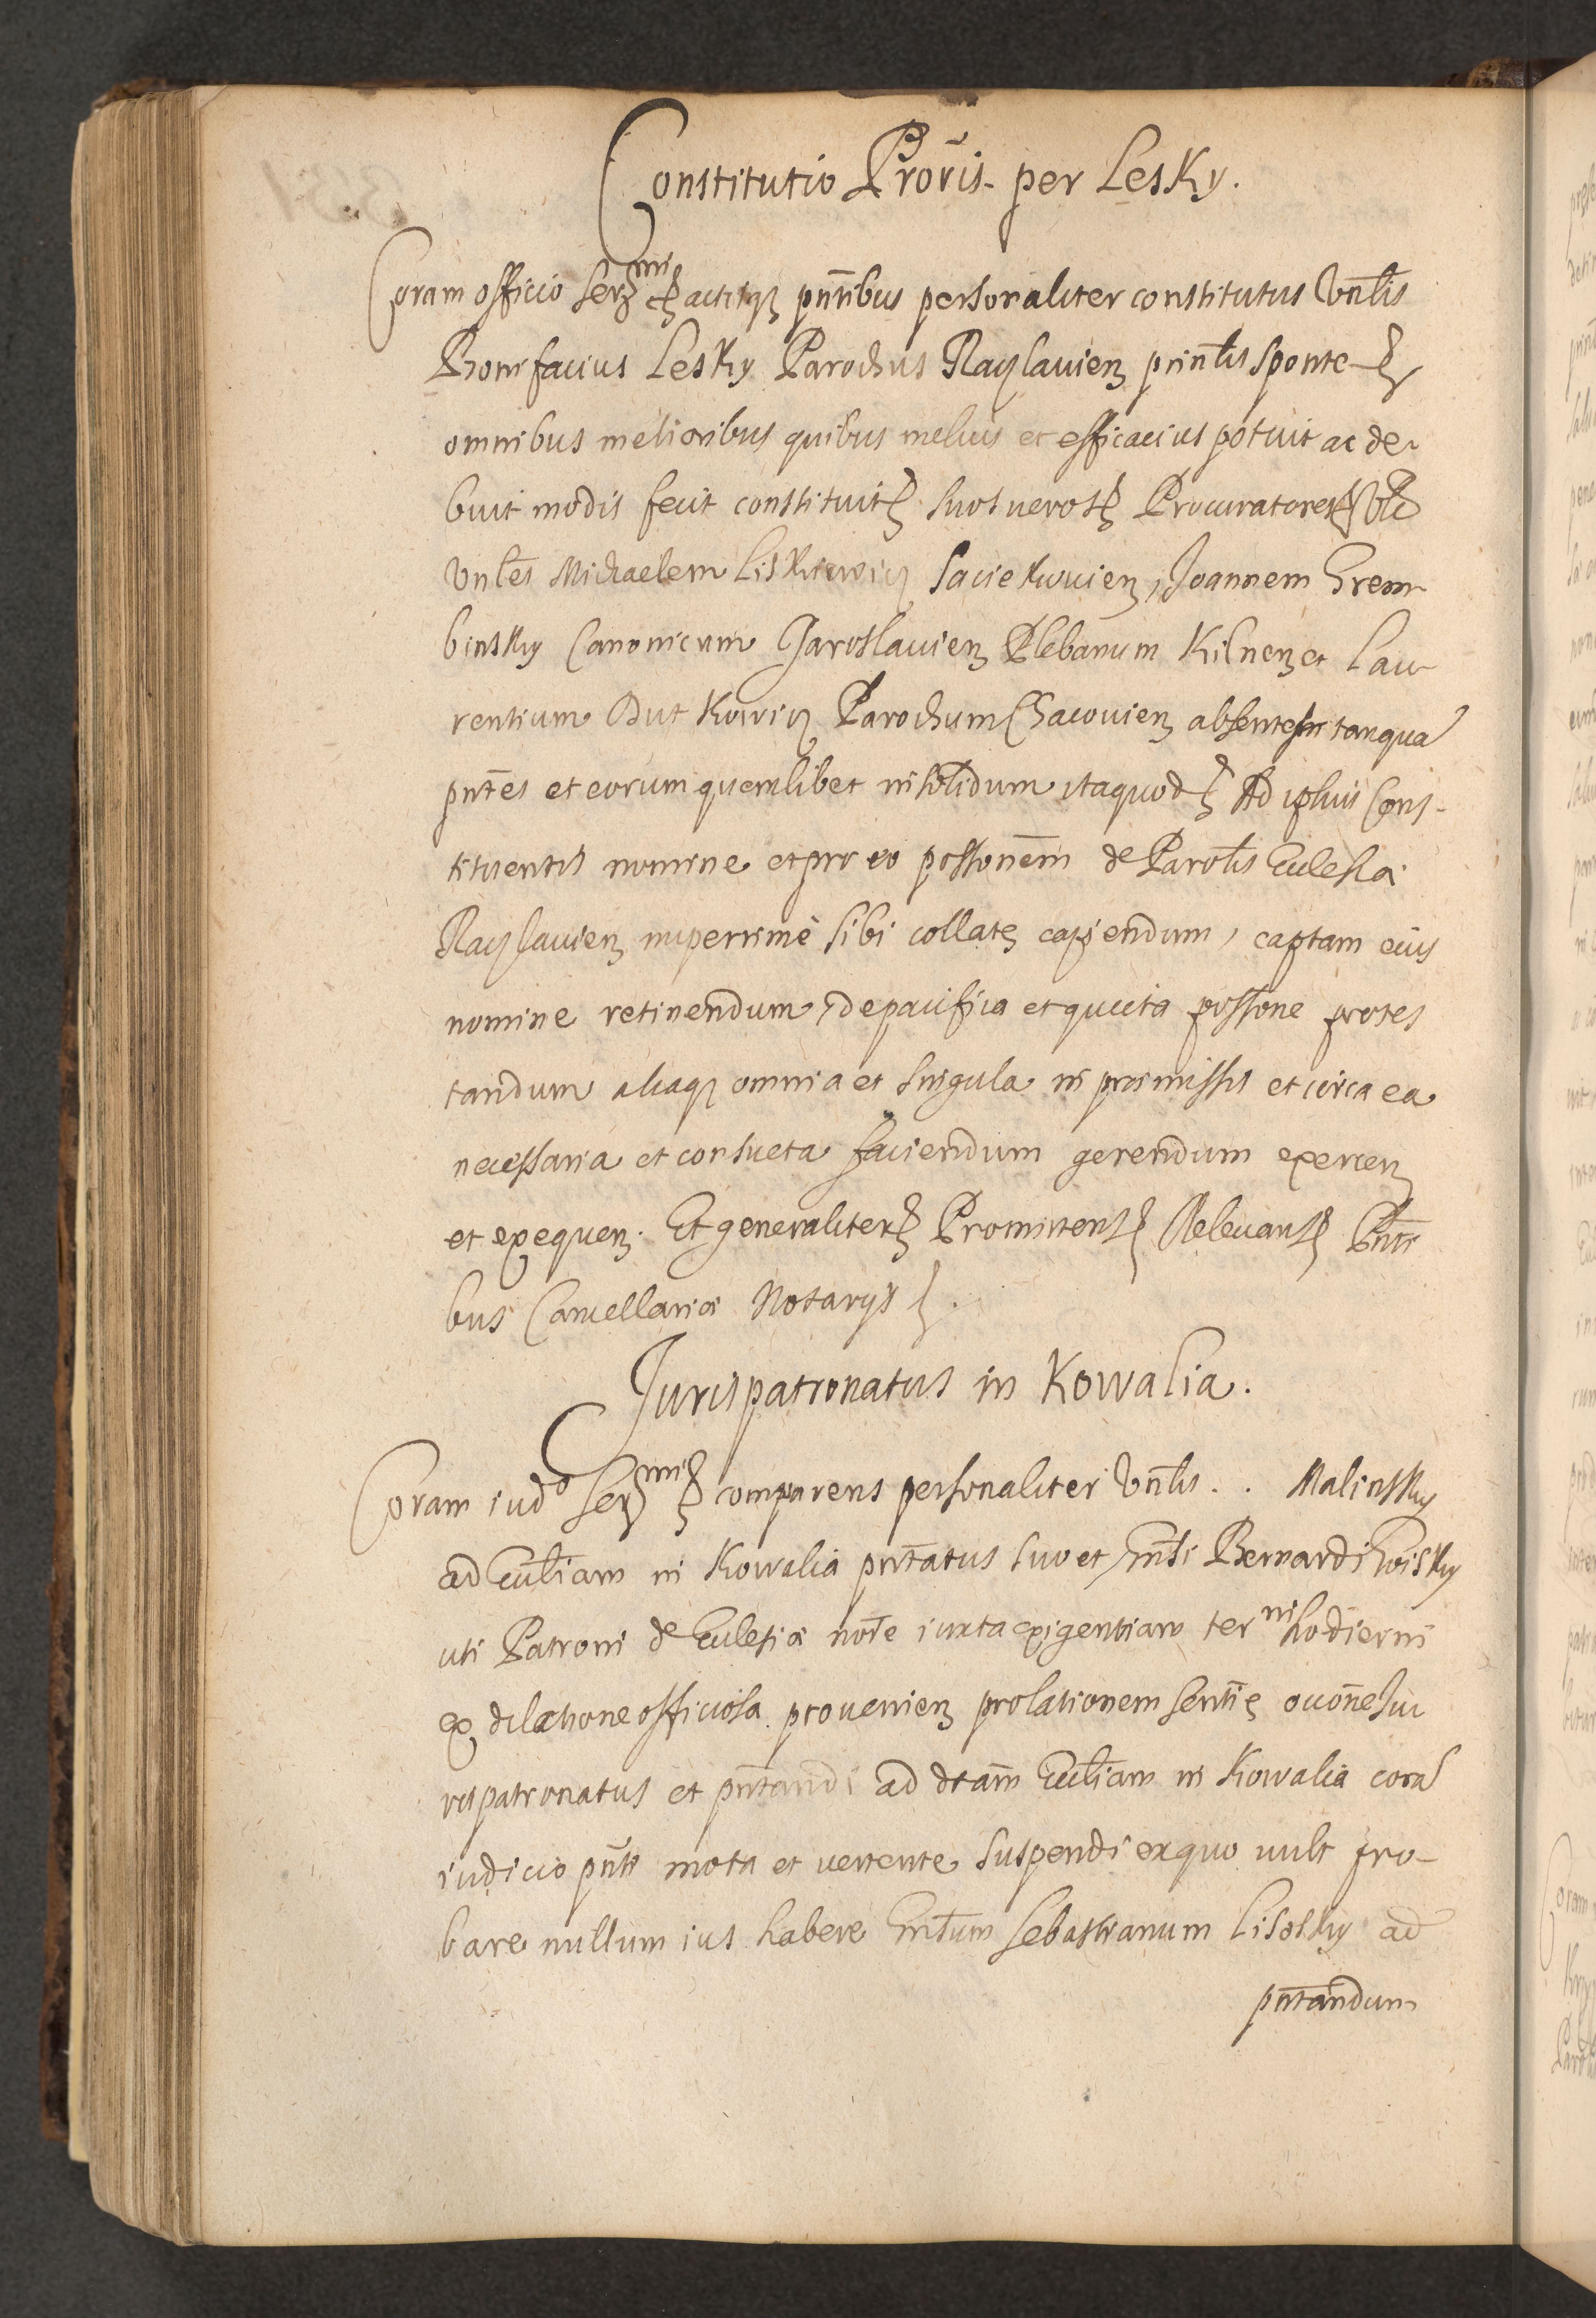 Constitutio Proris per Lesky.
Coram officio Ser mi etc actisq pntibus personaliter constitutus Vnlis
Bonifacius Lesky Parochus Raczlauien prinlis sponte etc
omnibus melioribus quibus melius et efficacius potuit ac de
buit modis fecit constituit etc suos ueros etc Procuratores etc
Vnles Michaelem Liskiewicz Sacie Kouien, Joannem Grem
binsky Canonicum Jaroslauien Plebanum Kilnen et Lau
rentium Dutkowicz Parochum Chacouien absentes tanqua
pntes et eorum quemlibet in solidum itaquod etc Ad ipsius Cons-
tituentis nomine et pro eo possonem de Parolis Ecclesia
Raczlauien nuperrime sibi collate capiendum, captam eius
nomine retinendum, de pacifica et quieta possone protes
tandum aliaq omnia et singula in præmissis et circa ea
necessaria et consueta faciendum gerendum exercen
et exequen. Et generaliter etc Promittens etc Releuans etc Pnti
bus Cancellariæ Notarijs etc.
Jurispatronatus in Kowalia.
Coram iudo Ser mi etc comparens personaliter Vnlis . . Malinsky
ad Eccliam in Kowalia pntatus suo et Gnsi Bernardi
uti Patroni de Ecclesiæ noie iuxta exigentiam ter ni hodierni
ex dilatione officiosa prouenien prolationem sentie
rispatronatus et pntandi ad dtam Eccliam in Kowalia cora
iudicio pnti mota et uertente suspendi exquo uult pro-
bare nullum ius habere Gnsum Sebastianum Lisosky ad
pntandum